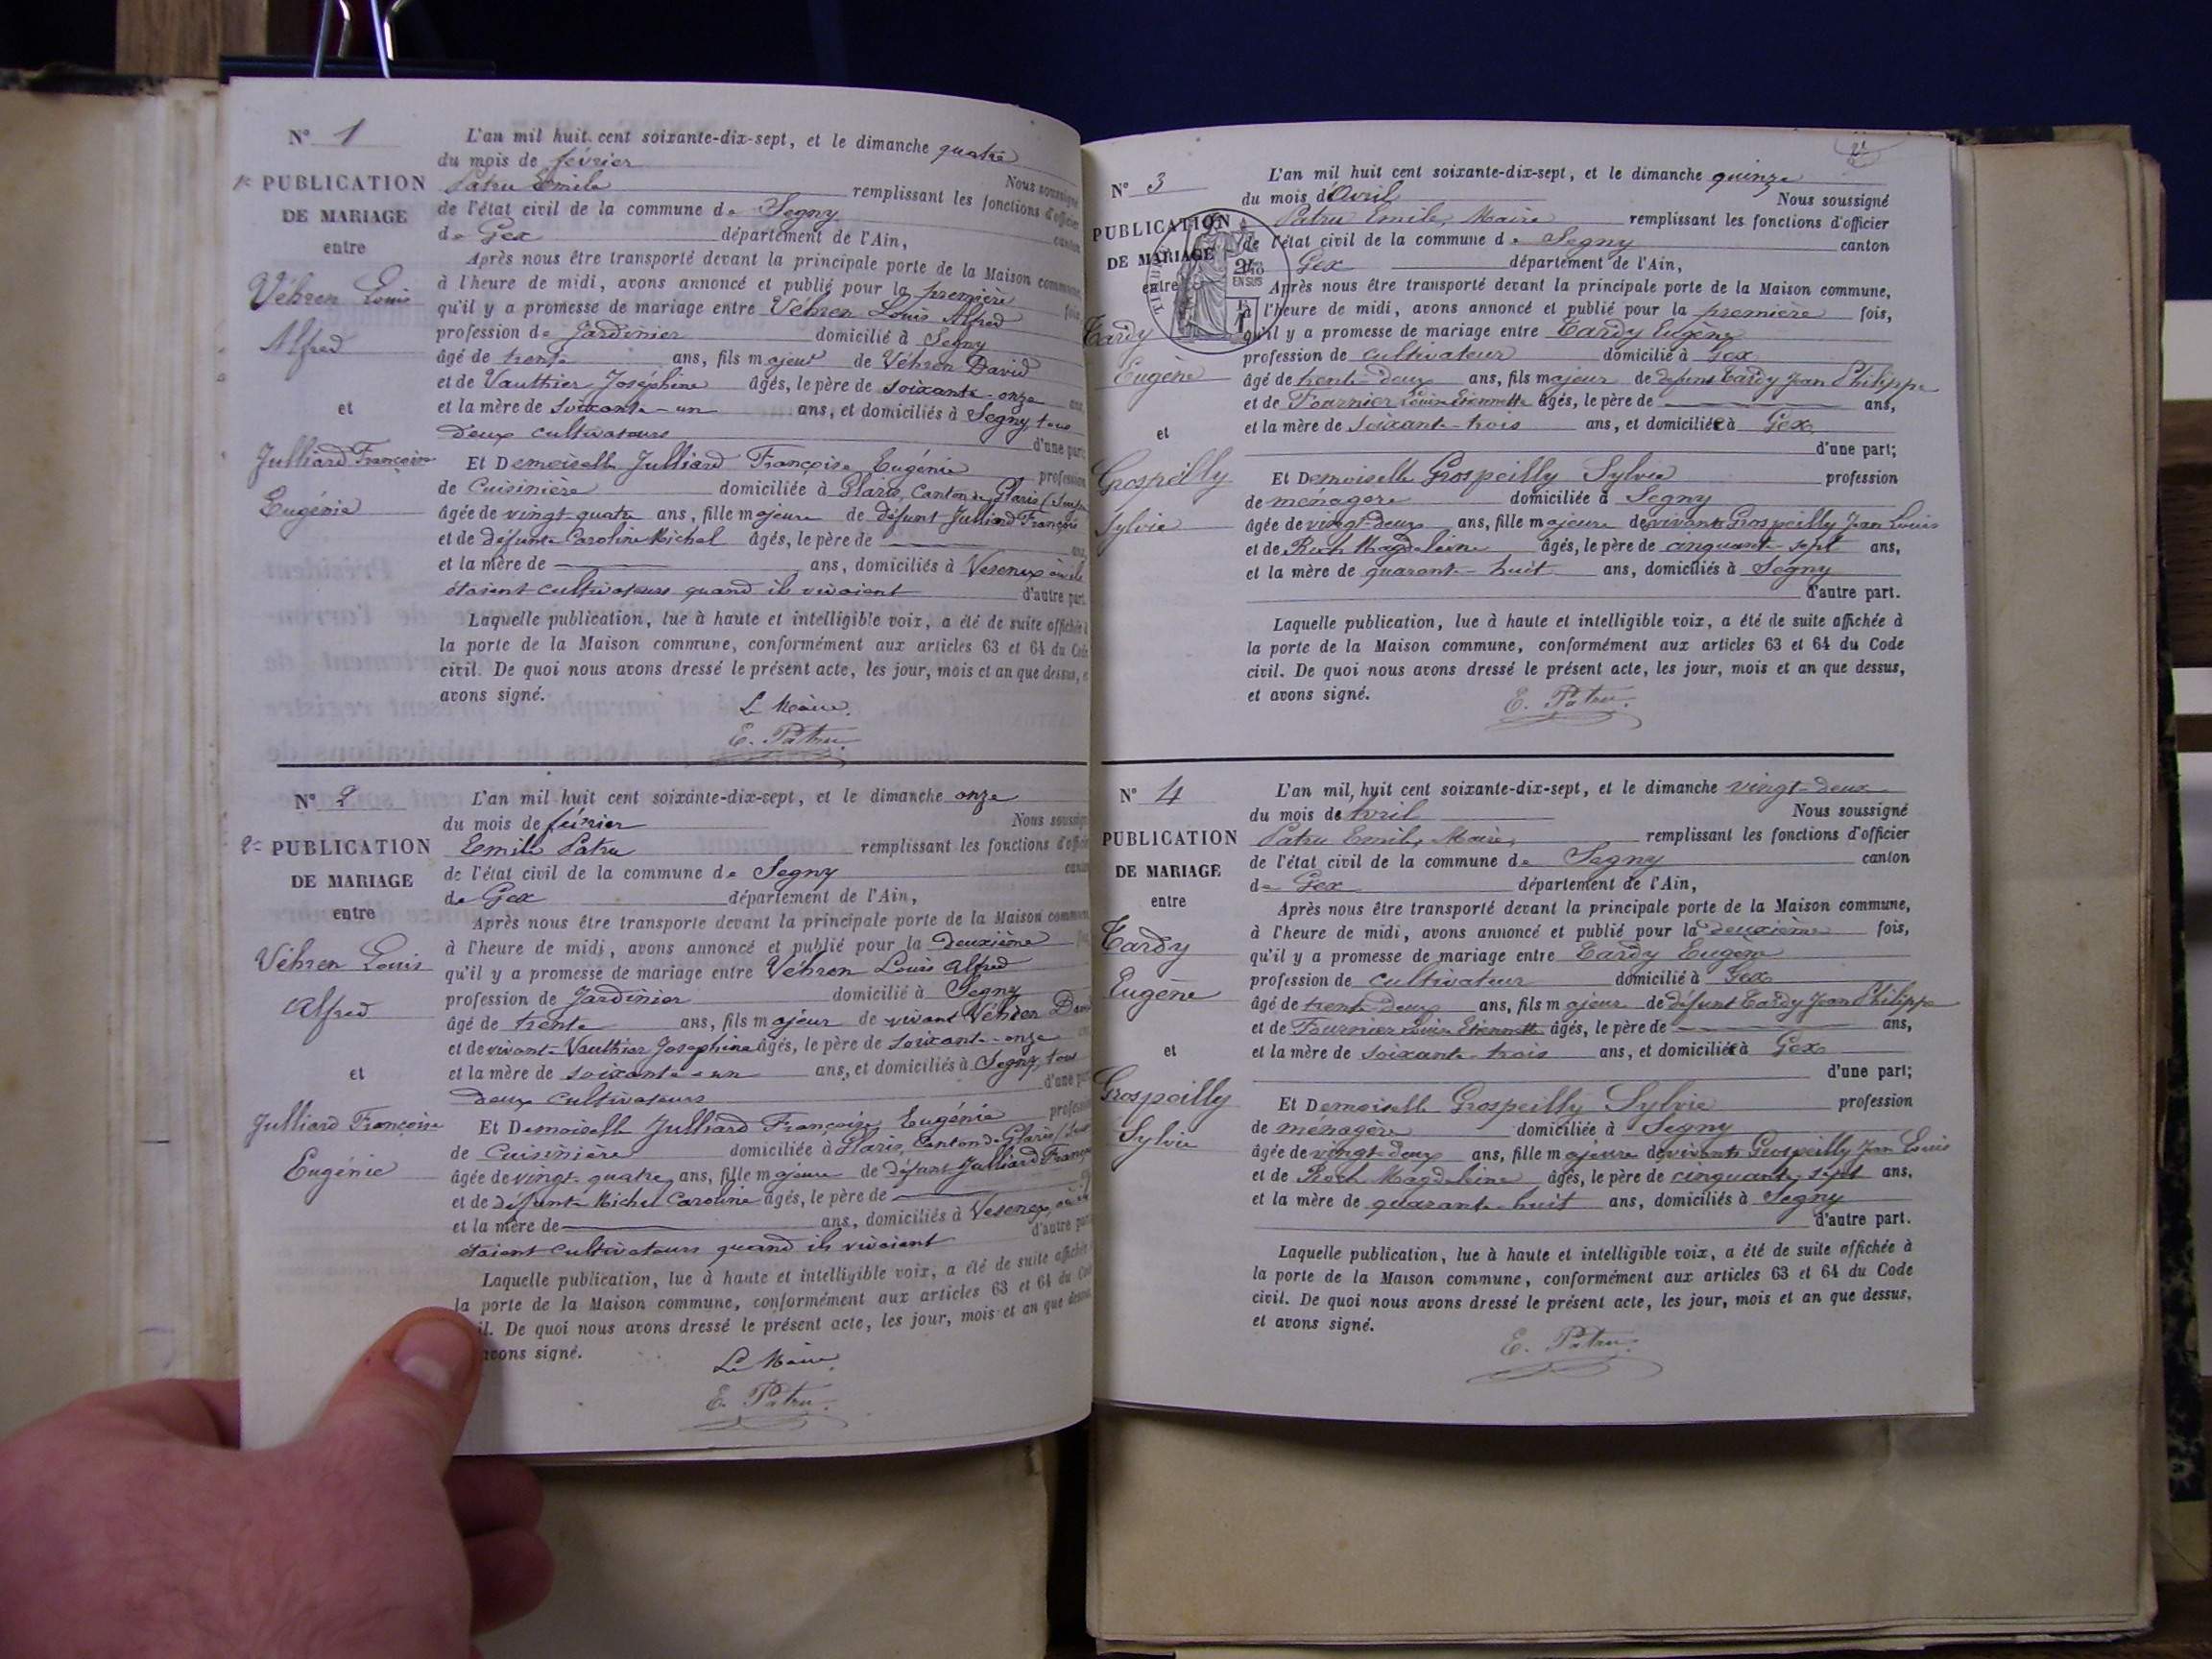 N° 1
1re PUBLICATION
DE MARIAGE
entre
Véhren Louis
Alfred
et
Julliard Françoise
Eugénie
L'an mil huit cent soixante-dix-sept, et le dimanche quatre
du mois de février Nous soussigné
Patru Emile remplissant les fonctions d'officier
de l'état civil de la commune de Segny canton
de Gex département de l'Ain,
Après nous être transporté devant la principale porte de la Maison commune,
à l'heure de midi, avons annoncé et publié pour la première fois,
qu'il y a promesse de mariage entre Véhren Louis Alfred
profession de Jardinier domicilié à Segny
âgé de trente ans, fils majeur de Véhren David
et de Vauthier Joséphine âgés, le père de soixante-onze ans,
et la mère de soixante-un ans, et domiciliés à Segny tous
deux cultivateurs d'une part;
Et Demoiselle Julliard Françoise Eugénie profession
de Cuisinière domiciliée à Glaris, Canton de Glaris (Suisse
âgée de vingt-quatre ans, fille majeure de défunt Julliard François
et de défunte Caroline Michel âgés, le père de ans,
et la mère de ans, domiciliés à Vesenex où ils
étaient cultivateurs quand ils vivaient d'autre part.
Laquelle publication, lue à haute et intelligible voix, a été de suite affichée à
la porte de la Maison commune, conformément aux articles 63 et 64 du Code
civil. De quoi nous avons dressé le présent acte, les jour, mois et an que dessus, e
avons signé.
Le Maire.
E. Patru.
N° 2
2e PUBLICATION
DE MARIAGE
entre
Véhren Louis
Alfred
et
Julliard Françoise
Eugénie
L'an mil huit cent soixante-dix-sept, et le dimanche onze
du mois de février Nous soussigné
Emile Patru remplissant les fonctions d'officier
de l'état civil de la commune de Segny canton
de Gex département de l'Ain,
Après nous être transporté devant la principale porte de la Maison commune
à l'heure de midi, avons annoncé et publié pour la deuxième fois
qu'il y a promesse de mariage entre Véhren Louis Alfred
profession de Jardinier domicilié à Segny
âgé de trente ans, fils majeur de vivant Véhren David
et de vivante Vauthier Josephine âgés, le père de soixante-onze
et la mère de soixante-un ans, et domiciliés à Segny, tous
deux cultivateurs d'une part
Et Demoiselle Julliard Françoise Eugénie profession
de Cuisinière domiciliée à Glaris, Canton de Glaris (Suisse
âgée de vingt-quatre ans, fille majeure de défunt Julliard François
et de défunte Michel Caroline âgés, le père de
et la mère de ans, domiciliés à Vesenex, où ils
étaient cultivateurs quand ils vivaient d'autre part
Laquelle publication, lue à haute et intelligible voix, a été de suite affichée
la porte de la Maison commune, conformément aux articles 63 et 64 du Code
il. De quoi nous avons dressé le présent acte, les jour, mois et an que dessus
avons signé.
Le Maire.
E. Patru.
2
N° 3
PUBLICATION
DE MARIAGE
entre
Tardy
Eugène
et
Grospeilly
Sylvie
L'an mil huit cent soixante-dix-sept, et le dimanche quinze
du mois d'Avril Nous soussigné
Patru Emile, Maire remplissant les fonctions d'officier
de l'état civil de la commune de Segny canton
Gex département de l'Ain,
Après nous être transporté devant la principale porte de la Maison commune,
à l'heure de midi, avons annoncé et publié pour la première fois,
qu'il y a promesse de mariage entre Tardy Eugène
profession de cultivateur domicilié à Gex
âgé de trente-deux ans, fils majeur de défunt Tardy Jean Philippe
et de Fournier Louise Etiennette âgés, le père de ans,
et la mère de soixante-trois ans, et domiciliée à Gex
d'une part;
Et Demoiselle Grospeilly Sylvie profession
de ménagère domiciliée à Segny
âgée de vingt-deux ans, fille majeure de vivants Grospeilly Jean Louis
et de Roch Magdeleine âgés, le père de cinquante-sept ans,
et la mère de quarante-huit ans, domiciliés à Segny
d'autre part.
Laquelle publication, lue à haute et intelligible voix, a été de suite affichée à
la porte de la Maison commune, conformément aux articles 63 et 64 du Code
civil. De quoi nous avons dressé le présent acte, les jour, mois et an que dessus,
et avons signé.
E. Patru.
N° 4
PUBLICATION
DE MARIAGE
entre
Tardy
Eugène
et
Grospeilly
Sylvie
L'an mil huit cent soixante-dix-sept, et le dimanche vingt-deux
du mois de Avril Nous soussigné
Patru Emile, Maire, remplissant les fonctions d'officier
de l'état civil de la commune de Segny canton
de Gex département de l'Ain,
Après nous être transporté devant la principale porte de la Maison commune,
à l'heure de midi, avons annoncé et publié pour la deuxième fois,
qu'il y a promesse de mariage entre Tardy Eugène
profession de cultivateur domicilié à Gex
âgé de trente-deux ans, fils majeur de défunt Tardy Jean Philippe
et de Fournier Louise Etiennette âgés, le père de ans,
et la mère de soixante-trois ans, et domiciliée à Gex
d'une part;
Et Demoiselle Grospeilly Sylvie profession
de ménagère domiciliée à Segny
âgée de vingt-deux ans, fille majeure de vivants Grospeilly Jean Louis
et de Roch Magdeleine âgés, le père de cinquante-sept ans,
et la mère de quarante-huit ans, domiciliés à Segny
d'autre part.
Laquelle publication, lue à haute et intelligible voix, a été de suite affichée à
la porte de la Maison commune, conformément aux articles 63 et 64 du Code
civil. De quoi nous avons dressé le présent acte, les jour, mois et an que dessus,
et avons signé.
E. Patru.